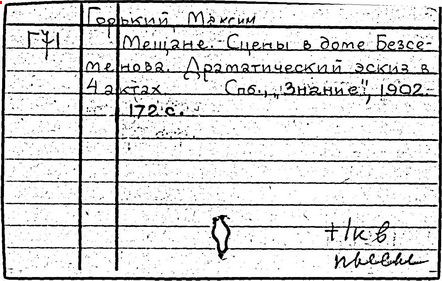 Горький, Максим
Г71
Мещане. Сцены в доме Безсе-
менова. Драматический эскиз в
4 актах Спб., „Знание", 1902-
172 с.
+1к в
пьесы